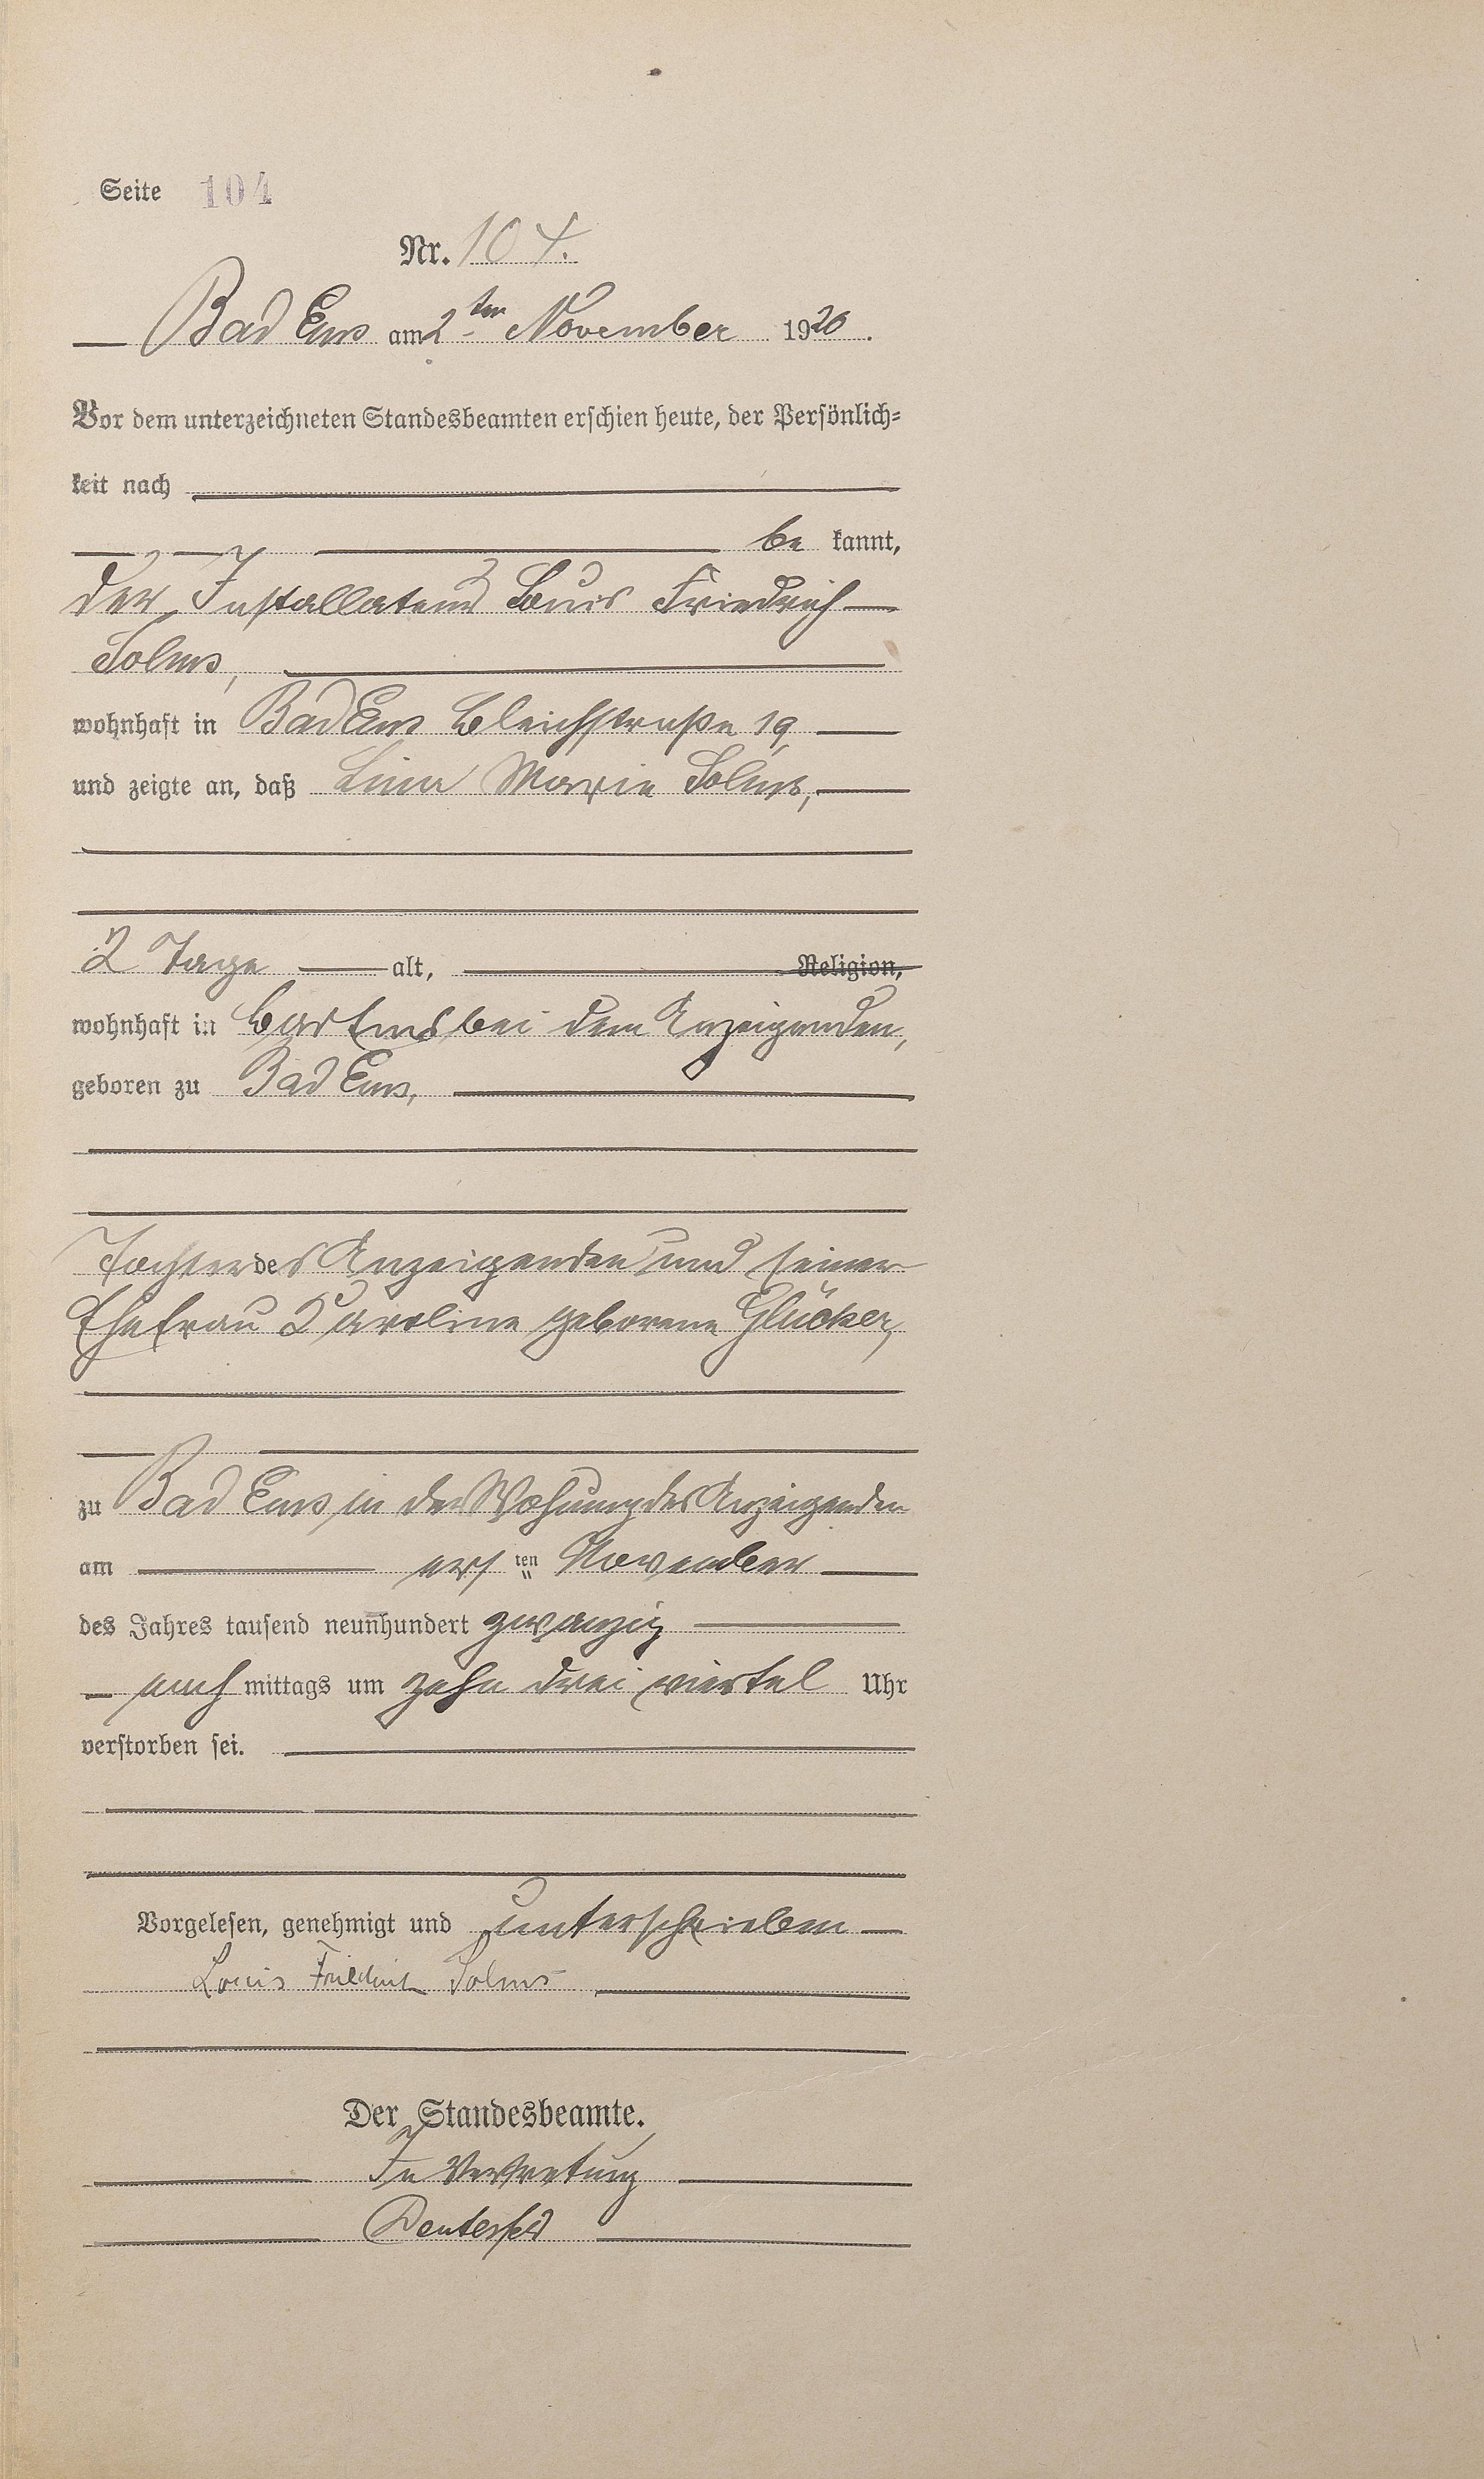 Seite 104
Nr. 104.
Bad Ems am 2ten November 1920.
Vor dem unterzeichneten Standesbeamten erschien heute, der Persönlich-
keit nach
be kannt,
der Installateur Louis Friedrich
Solms,
wohnhaft in Bad Ems Bleichstraße 19,
und zeigte an, daß Lina Marie Solms,
2 Tage alt, Religion,
wohnhaft in Bad Ems bei dem Anzeigenden,
geboren zu Bad Ems,
Tochter des Anzeigenden und seiner
Ehefrau Karoline geborene Glücker,
zu Bad Ems in der Wohnung des Anzeigenden
am ersten November
des Jahres tausend neunhundert zwanzig
nach mittags um zehn drei viertel Uhr
verstorben sei.
Vorgelesen, genehmigt und unterschrieben
Louis Friedrich Solms
Der Standesbeamte.
In Vertretung